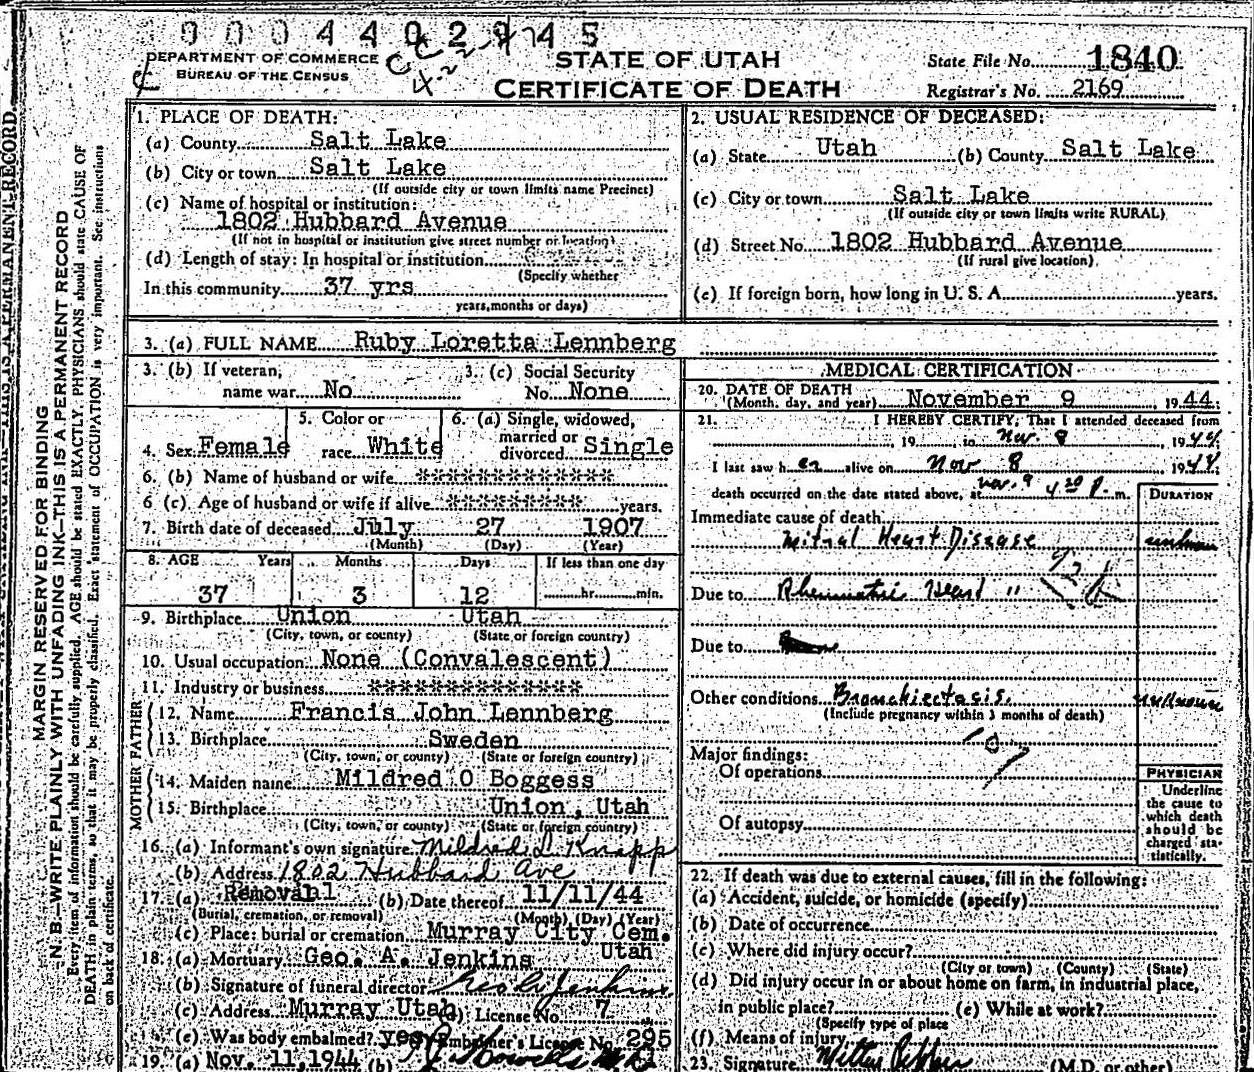 000440245
DEPARTMENT OF COMMERCE
BUREAU OF THE CENSUS
STATE OF UTAH
CERTIFICATE OF DEATH
State File No. 1840
Registrar's No. 2169
MARGIN RESERVED FOR BINDING
N. B.—WRITE PLAINLY WITH UNFADING INK—THIS IS A PERMANENT RECORD
Every item of information should be carefully supplied. AGE should be stated EXACTLY. PHYSICIANS should state CAUSE OF
DEATH in plain terms, so that it may be properly classified. Exact statement of OCCUPATION is very important. See instructions
on back of certificate.
1. PLACE OF DEATH:
(a) County Salt Lake
(b) City or town Salt Lake
(If outside city or town limits name Precinct)
(c) Name of hospital or institution:
1802 Hubbard Avenue
(If not in hospital or institution give street number or location)
(d) Length of stay: In hospital or institution
(Specify whether
In this community 37 yrs
years, months or days)
2. USUAL RESIDENCE OF DECEASED:
(a) State Utah (b) County Salt Lake
(c) City or town Salt Lake
(If outside city or town limits write RURAL)
(d) Street No. 1802 Hubbard Avenue
(If rural give location)
(e) If foreign born, how long in U. S. A. years.
3. (a) FULL NAME Ruby Loretta Lennberg
3. (b) If veteran,
name war No
3. (c) Social Security
No. None
4. Sex Female
5. Color or
race White
6. (a) Single, widowed,
married or
divorced Single
6. (b) Name of husband or wife ******************
6 (c) Age of husband or wife if alive ************ years.
7. Birth date of deceased July 27 1907
(Month) (Day) (Year)
8. AGE Years Months Days If less than one day
37 3 12 hr. min.
9. Birthplace Union Utah
(City, town, or county) (State or foreign country)
10. Usual occupation None (Convalescent)
11. Industry or business **************
FATHER
12. Name Francis John Lennberg
13. Birthplace Sweden
(City, town, or county) (State or foreign country)
MOTHER
14. Maiden name Mildred O Boggess
15. Birthplace Union, Utah
(City, town, or county) (State or foreign country)
16. (a) Informant's own signature Mildred L Knapp
(b) Address 1802 Hubbard Ave
17. (a) Removal (b) Date thereof 11/11/44
(Burial, cremation, or removal) (Month) (Day) (Year)
(c) Place: burial or cremation Murray City Cem.
Utah
18. (a) Mortuary Geo. A. Jenkins
(b) Signature of funeral director Geo A Jenkins
(c) Address Murray Utah (d) License No. 7
(e) Was body embalmed? yes Embalmer's License No. 295
19. (a) Nov. 11, 1944 (b)
MEDICAL CERTIFICATION
20. DATE OF DEATH
(Month, day, and year) November 9 1944
21. I HEREBY CERTIFY, That I attended deceased from
19 to Nov. 8, 1944
I last saw her alive on Nov 8 1944
death occurred on the date stated above, at Nov. 9 4 20 P. m.
DURATION
Immediate cause of death
Mitral Heart Disease unknown
Due to Rheumatic Heart "
Due to
Other conditions Bronchiectasis. unknown
(Include pregnancy within 3 months of death)
Major findings:
Of operations
Of autopsy
PHYSICIAN
Underline
the cause to
which death
should be
charged sta-
tistically.
22. If death was due to external causes, fill in the following:
(a) Accident, suicide, or homicide (specify)
(b) Date of occurrence
(c) Where did injury occur?
(City or town) (County) (State)
(d) Did injury occur in or about home on farm, in industrial place,
in public place? (e) While at work?
(Specify type of place
(f) Means of injury
23. Signature (M.D. or other)